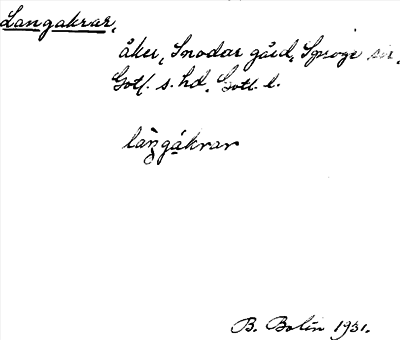 Langakrar,
åker, Snodar gård, Sproge sn,
Gotl. s. hd, Gotl. l.
làn̥gákrar
B. Bolin 1931.